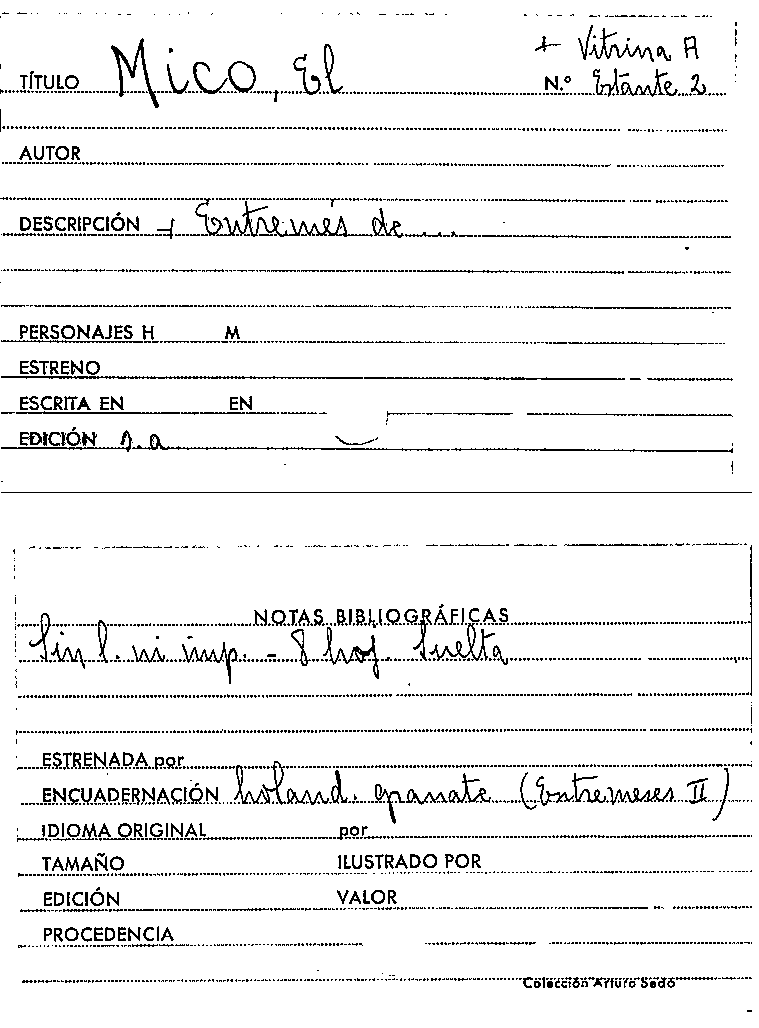 + Vitrina A
TÍTULO Mico, El N.º Estante 2
AUTOR
DESCRIPCIÓN + Entremés de ...
PERSONAJES H M
ESTRENO
ESCRITA EN EN
EDICIÓN s.a
NOTAS BIBLIOGRÁFICAS
Sin l. ni imp. - 8 hoj. Suelta
ESTRENADA por
ENCUADERNACIÓN holand. granate (Entremeses II)
IDIOMA ORIGINAL por
TAMAÑO ILUSTRADO POR
EDICIÓN VALOR
PROCEDENCIA
Colección Arturo Sedó